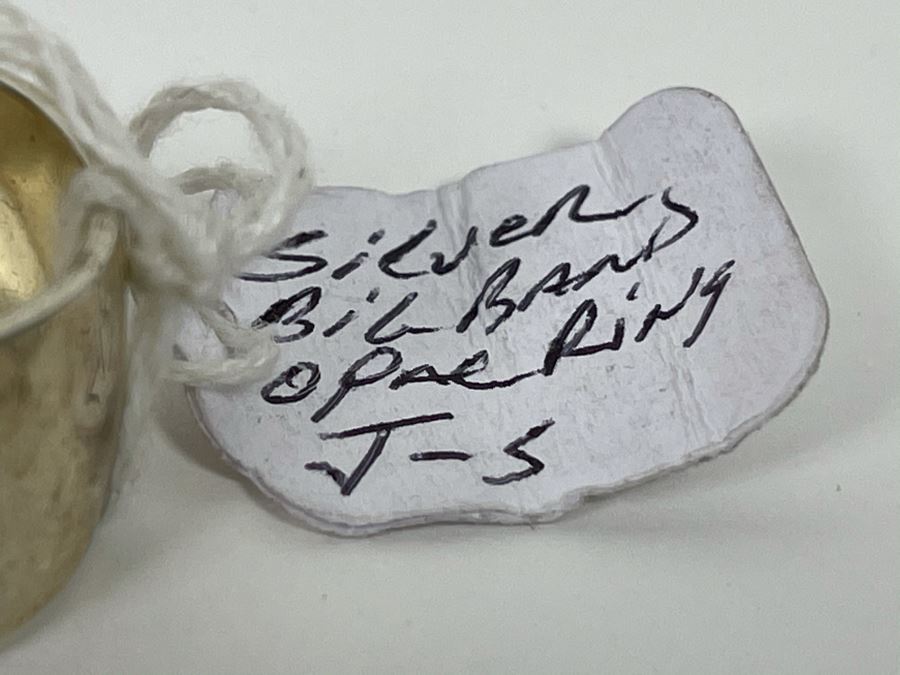 SilveR
BiG BAND
OPAL RiNg
J-S